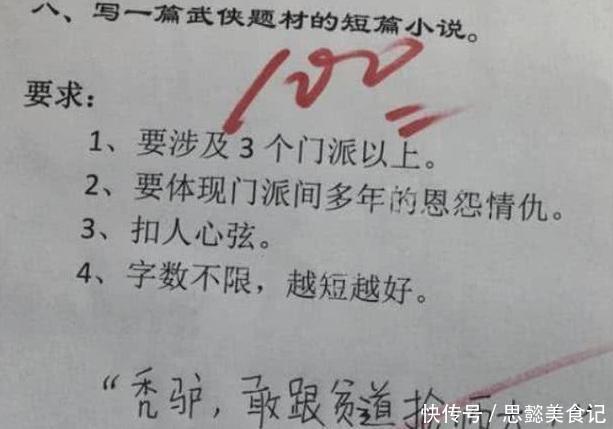 八、写一篇武侠题材的短篇小说。
100
要求：
1、要涉及3个门派以上。
2、要体现门派间多年的恩怨情仇。
3、扣人心弦。
4、字数不限，越短越好。
“秃驴，敢跟贫道抢
快传号／思懿美食记